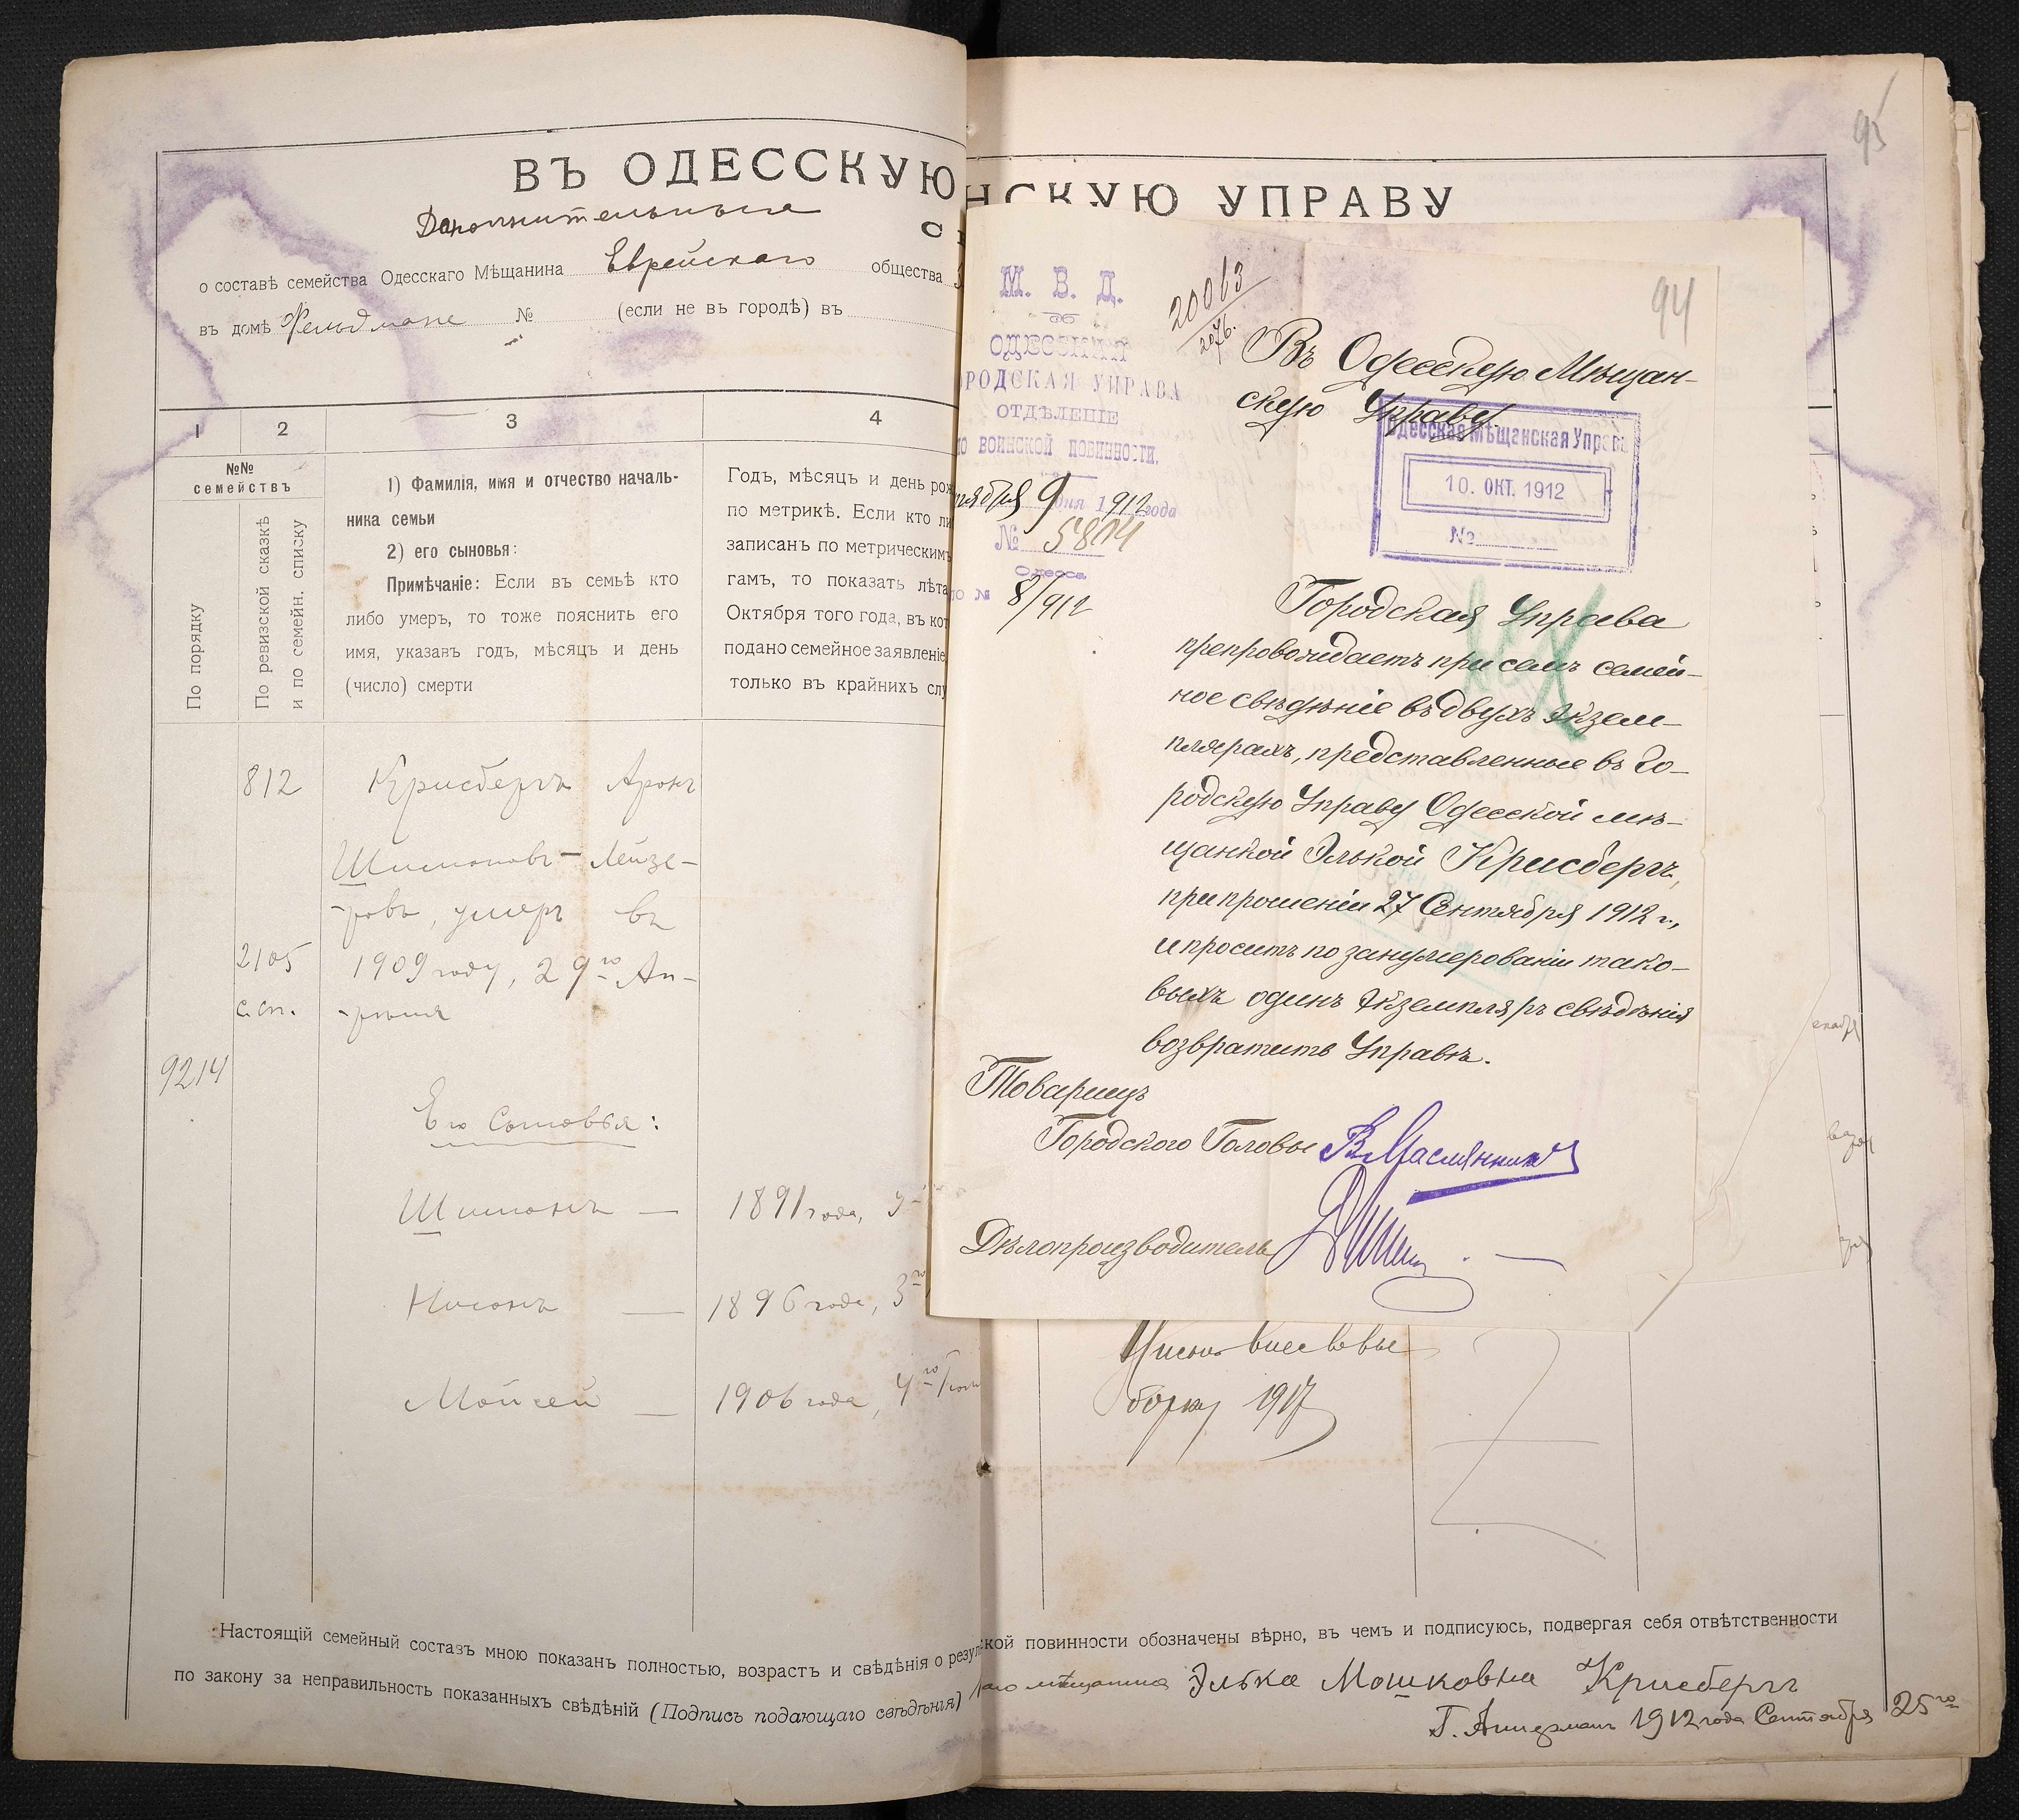 ВЪ ОДЕССКУЮ
НСКУЮ УПРАВУ
Дополнительныя
о составѣ семейства Одесскаго Мѣщанина Еврейскаго общества
въ домѣ Фельдмане № (если не въ городѣ) въ
1 2 3 4
№№ семействъ
По порядку
По ревизской сказкѣ и по семейн. списку
1) Фамилія, имя и отчество началь-
ника семьи
2) его сыновья:
Примѣчаніе: Если въ семьѣ кто
либо умеръ, то тоже пояснить его
имя, указавъ годъ, мѣсяцъ и день
(число) смерти
Годъ, мѣсяцъ и день рож
по метрикѣ. Если кто ли
записанъ по метрическимъ
гамъ, то показать лѣта
Октября того года, въ кот
подано семейное заявленіе
только въ крайнихъ слу
812 Крисбергъ Аронъ
Шимоновъ-Лейзе-
-ровъ, умеръ въ
2105 1909 году, 29го Ап-
с.сп. -рѣля
9214
Его Сыновья:
Шимонъ — 1891 года,
Нисонъ — 1896 года, 3го
Мойсей — 1906 года, 4го
Настоящій семейный составъ мною показанъ полностью, возрастъ и свѣдѣнія о резул
по закону за неправильность показанныхъ свѣдѣній (Подпись подающаго свѣдѣнія)
95
94
М. В. Д.
ОДЕССКАЯ
ОРОДСКАЯ УПРАВА
ОТДѢЛЕНІЕ
ПО ВОИНСКОЙ ПОВИННОСТИ.
9 дня 1912 года
№ 5804
Одесса
№ 8/912
20063
2076.
Въ Одесскую Мѣщан-
скую Управу.
Одесская Мѣщанская Управа
10. ОКТ. 1912
№
Городская Управа
препровождаетъ при семъ семей-
ное свѣдѣніе въ двухъ экзем-
плярахъ, представленные въ Го-
родскую Управу Одесской мѣ-
щанкой Элькой Крисбергъ,
при прошеніи 27 Сентября 1912 г.,
и проситъ по занумерованіи тако-
выхъ одинъ экземпляръ свѣдѣнія
возвратить Управѣ.
Товарищъ
Городского Головы В. Масленников
Дѣлопроизводитель
1917
ской повинности обозначены вѣрно, въ чемъ и подписуюсь, подвергая себя отвѣтственности
Элька Мошковна Крисбергъ
1912 года Сентября 25го